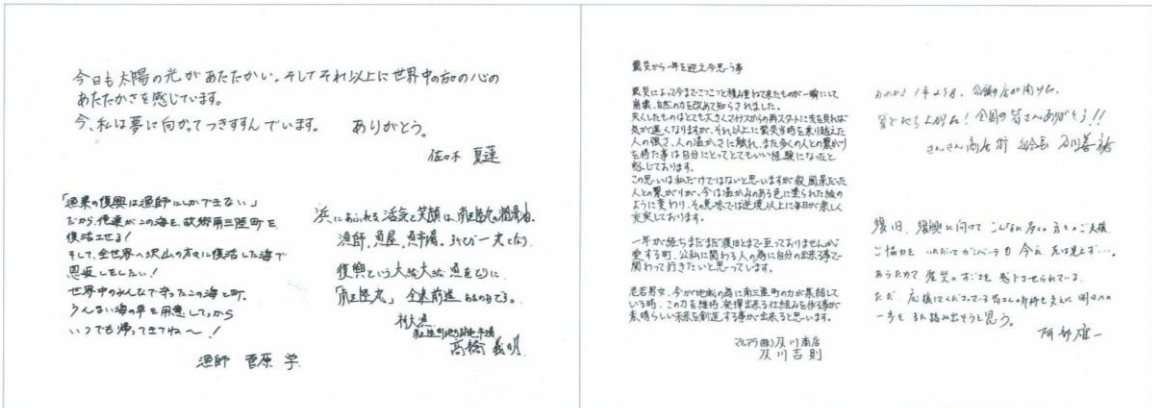 今日も太陽の光があたたかい。そしてそれ以上に世界中の方の心の
あたたかさを感じています。
今、私は夢に向かってつきすすんでいます。 ありがとう。
佐々木 夏蓮
「漁業の復興は漁師にしかできない」
だから、俺達がこの海を、故郷南三陸町を
復活させる!
そして、全世界へ沢山の方々に復活した海で
恩返しをしたい!
世界中のみんなで守ったこの海と町。
うんまい海の幸を用意してっから
いつでも帰ってきてね〜!
漁師 菅原 学
浜にあふれる活気と笑顔は、南三陸丸の
漁師、魚屋、魚市場。
復興という大きな大きな魚をとりに
「南三陸丸」全速前進
高橋 義明
震災から一年を迎え今思う事
震災によって今までこつこつと積み重ねて来たものが一瞬にして
崩壊、自然の力を改めて知らされました。
失くしたものはとても大きくマイナスからの再スタートに先を見れば
気が遠くなりますが、それ以上に震災当時を乗り越えた
人の強さ、人の温かさに触れ、また多くの人との繋がり
を持た事は自分にとってとてもいい経験になったと
感じております。
この思いは私だけではないと思いますが殺風景だった
人との繋がりが、今は温かみのある色に塗られた絵の
ように変わり、その意味では逆境以上に毎日が楽しく
充実しております。
一年が経ちまだまだ復旧とまで至っておりませんが
愛する町、公私に関わる人の為に自分の出来る事で
関わって行きたいと思っています。
老若男女、今が地域の為に南三陸町の力が集結して
いる時、この力を維持、発揮出来る仕組みを作る事が
素晴らしい未来を創造する事が出来ると思います。
マルアラ(株)及川商店
及川吉則
皆で立ち上がる!全国の皆さんありがとう!!
さんさん商店街
復旧、復興に向けてこんなに多くの方々のご支援、
ご協力をいただいてガンバッテも今だ先は見えず…。
あらためて震災のすごさを感じさせられている。
ただ、応援してくださっている皆さんの
一歩をまた踏み出そうと思う。
阿部雄一